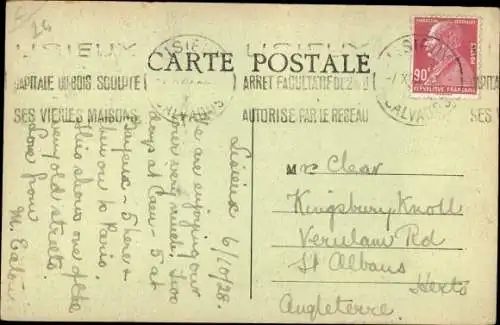 24
LISIEUX
LISIEUX
CAPITALE DU BOIS SCULPTÉ
SES VIEILLES MAISONS
LISIEUX
CALVADOS
CARTE POSTALE
ARRET FACULTATIF DE
AUTORISE PAR LE RESEAU
LISIEUX
CALVADOS
90c
POSTES
REPUBLIQUE FRANÇAISE
CAPITA
SES
Lisieux 6/10/28.
We are enjoying our
tour very much. Two
days at Caen - 5 at
Bayeux - 5 here &
then on to Paris.
This shows one of the
very old streets.
Love from
M. Eaton
Mrs Clear
Kingsbury Knoll
Verulam Rd
St Albans
Herts
Angleterre.